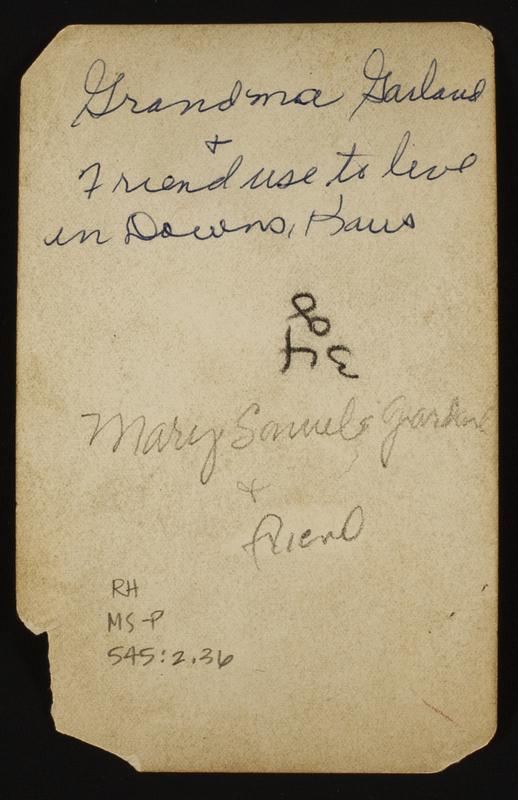 Grandma Garland
+
Friend use to live
in Downs, Kans
Mary Samuels Garland
+
friend
RH
MS-P
545:2.36